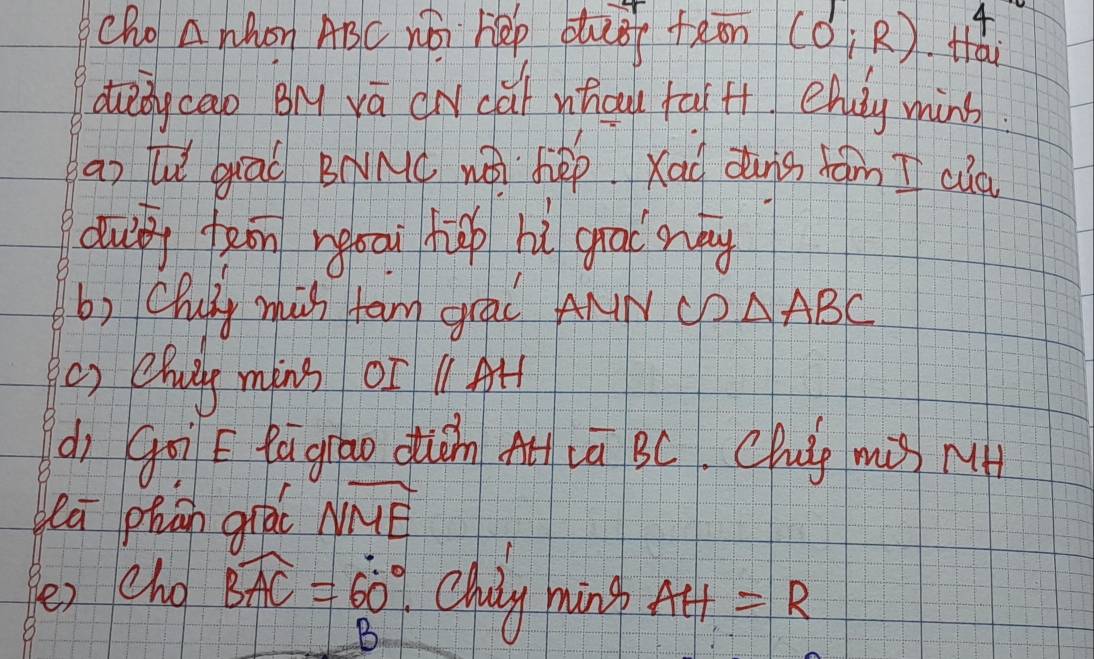 Cho Δ nhọn ABC nội tiếp đường tròn (O; R). Hai
đường cao BM và CN cắt nhau tại H. Chứng minh:
a) Tứ giác BNMC nội tiếp. Xác định tâm I của
đường tròn ngoại tiếp tứ giác này
b) Chứng minh tam giác AMN ∽ Δ ABC
c) Chứng minh OI // AH
d) Gọi E là giao điểm AH và BC. Chứng minh MH
là phân giác NME
e) Cho BAC = 60°. Chứng minh AH = R
B